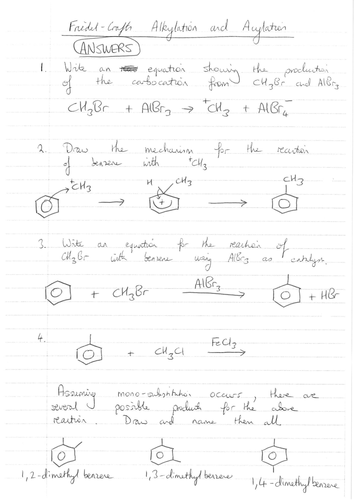 Friedel-Crafts Alkylation and Acylation
ANSWERS
1. Write an equation showing the production
of the carbocation from CH3Br and AlBr3
CH3Br + AlBr3 → +CH3 + AlBr4-
2. Draw the mechanism for the reaction
of benzene with +CH3
+CH3 → H CH3 + → CH3
3. Write an equation for the reaction of
CH3Br with benzene using AlBr3 as catalyst.
+ CH3Br AlBr3 → + HBr
4. + CH3Cl FeCl3 →
Assuming mono-substitution occurs, there are
several possible products for the above
reaction. Draw and name them all.
1,2-dimethyl benzene 1,3-dimethyl benzene 1,4-dimethyl benzene